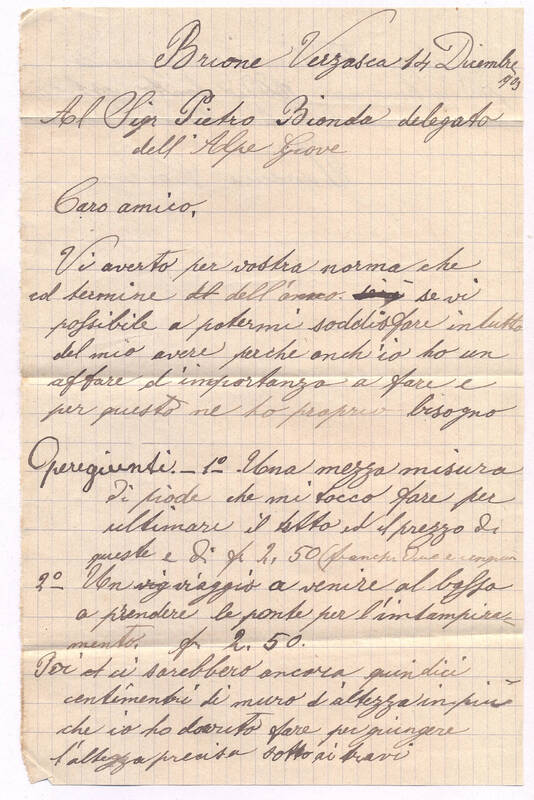 Brione Verzasca 14 Dicembre
1903
Al Sigr Pietro Bionda delegato
dell'Alpe Giove
Caro amico,
Vi averto per vostra norma che
ed termine dell'anno. se vi
possibile a potermi soddisfare in tutto
del mio avere perche anch'io ho un
affare d'importanza a fare e
per questo ne ho proprio bisogno
Operegiunti. - 1º Una mezza misura
di piode che mi tocco fare per
ultimare il tetto ed il prezzo di
queste e di fr 2,50 (franchi due e cinquan
2º Un viaggio a venire al basso
a prendere le ponte per l'intampira-
mento. fr 2.50.
Poi ci sarebbero ancora quindici
centimentri di muro d'altezza in piu
che io ho dovuto fare per giungere
l'altezza precisa sotto ai travi